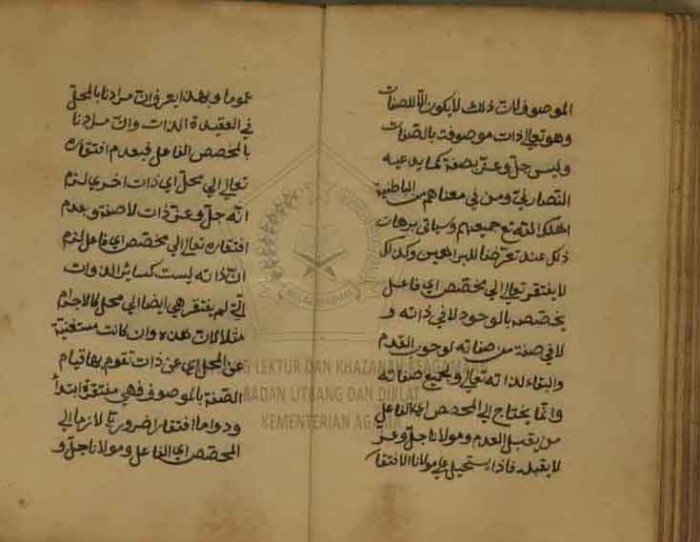 الموصوف لان ذلك لا يكون الا للصفات
وهو تعالى ذات موصوفة بالصفات
وليس جل وعز بصفة كما يدعيه
النصارى ومن في معناهم من الباطنية
اهلك الله تع جميعهم وسياتى برهان
ذلك عند تعرضنا للبراهين وكذلك
لا يفتقر تعالى الى مخصص اي فاعل
يخصصه بالوجود لا في ذاته و
لا في صفة من صفاته لوجوب القدم
والبقاء لذاته تعالى ولجميع صفاته
وانما يحتاج الى المخصص اي الفاعل
من يقبل العدم ومولانا جل وعز
لا يقبله فاذا يستحيل على مولانا الافتقار
عموما وبهذا يعرف ان مرادنا بالمحل
في العقيدة الذات وان مرادنا
بالمخصص الفاعل فبعدم افتقاره
تعالى الى محل اي ذات اخرى لزم
انه جل وعز ذات لا صفة وبعدم
افتقاره تعالى الى مخصص اي فاعل لزم
ان ذاته ليست كسائر الذوات
التي لم يفتقر هي ايضا الى محل كالاجرام
مثلا لان هذه وان كانت مستغنية
عن المحل اي عن ذات تقوم بها قيام
الصفة بالموصوف فهي مفتقرة ابتدأ
ودواما افتقارا ضروريا لازما الى
المخصص اي الفاعل ومولانا جل و
LEKTUR DAN KHAZANAH KEAGAMAAN
BADAN LITBANG DAN DIKLAT
KEMENTERIAN AGAMA